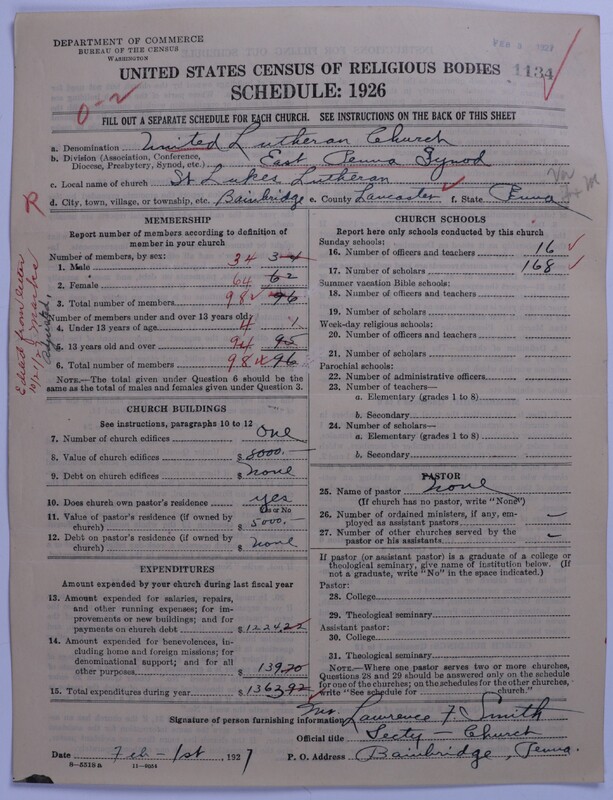 DEPARTMENT OF COMMERCE
BUREAU OF THE CENSUS
WASHINGTON
FEB 3 1927
UNITED STATES CENSUS OF RELIGIOUS BODIES 1134
SCHEDULE: 1926
0-2
FILL OUT A SEPARATE SCHEDULE FOR EACH CHURCH. SEE INSTRUCTIONS ON THE BACK OF THIS SHEET
a. Denomination United Lutheran Church
b. Division (Association, Conference, Diocese, Presbytery, Synod, etc.) East Penna Synod
c. Local name of church St Lukes Lutheran
d. City, town, village, or township, etc. Bainbridge e. County Lancaster f. State Penna
MEMBERSHIP
Report number of members according to definition of
member in your church
Number of members, by sex:
1. Male 34 34
2. Female 64 62
3. Total number of members 98 96
Number of members under and over 13 years old:
4. Under 13 years of age 4 1
5. 13 years old and over 94 95
6. Total number of members 98 96
NOTE.—The total given under Question 6 should be
same as the total of males and females given under Question 3.
CHURCH BUILDINGS
See instructions, paragraphs 10 to 12
7. Number of church edifices One
8. Value of church edifices $ 8000.—
9. Debt on church edifices $ none
10. Does church own pastor's residence yes
Yes or No
11. Value of pastor's residence (if owned by
church) $ 5000.—
12. Debt on pastor's residence (if owned by
church) $ none
EXPENDITURES
Amount expended by your church during last fiscal year
13. Amount expended for salaries, repairs,
and other running expenses; for im-
provements or new buildings; and for
payments on church debt $ 1224.22
14. Amount expended for benevolences,
including home and foreign missions; for
denominational support; and for all
other purposes 139.70
15. Total expenditures during year $ 1363.92
CHURCH SCHOOLS
Report here only schools conducted by this church
Sunday schools:
16. Number of officers and teachers 16
17. Number of scholars 168
Summer vacation Bible schools:
18. Number of officers and teachers
19. Number of scholars
Week-day religious schools:
20. Number of officers and teachers
21. Number of scholars
Parochial schools:
22. Number of administrative officers
23. Number of teachers—
a. Elementary (grades 1 to 8)
b. Secondary
24. Number of scholars—
a. Elementary (grades 1 to 8)
b. Secondary
PASTOR
25. Name of pastor none
(If church has no pastor, write "None")
26. Number of ordained ministers, if any, em-
ployed as assistant pastors —
27. Number of other churches served by the
pastor or his assistants —
If pastor (or assistant pastor) is a graduate of a college or
theological seminary, give name of institution below. (If
not a graduate, write "No" in the space indicated.)
Pastor:
28. College
29. Theological seminary
Assistant pastor:
30. College
31. Theological seminary
NOTE.—Where one pastor serves two or more churches,
Questions 28 and 29 should be answered only on the schedule
for one of the churches; on the schedules for the other churches,
write "See schedule for church."
Signature of person furnishing information Mrs. Lawrence F. Smith
Official title Secty — Church
Date Feb - 1st 1927 P. O. Address Bainbridge, Penna.
8-5519 a 11-9254